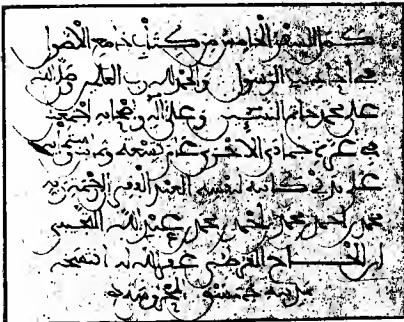 كمل السفر الخامس من كتاب جامع الأصول
في أحاديث الرسول والحمد لله رب العلمين وصلى الله
على محمد خاتم النبيين وعلى آله وصحابه أجمعين
في غرة جمادى الأخرى عام تسعة
على يدي كاتبه لنفسه العبد الفقير إلى رحمة ربه
محمد بن أحمد بن محمد بن أحمد بن محمد بن عبد الله
ابن الحاج غفر الله له
بمدينة دمشق المحروسة